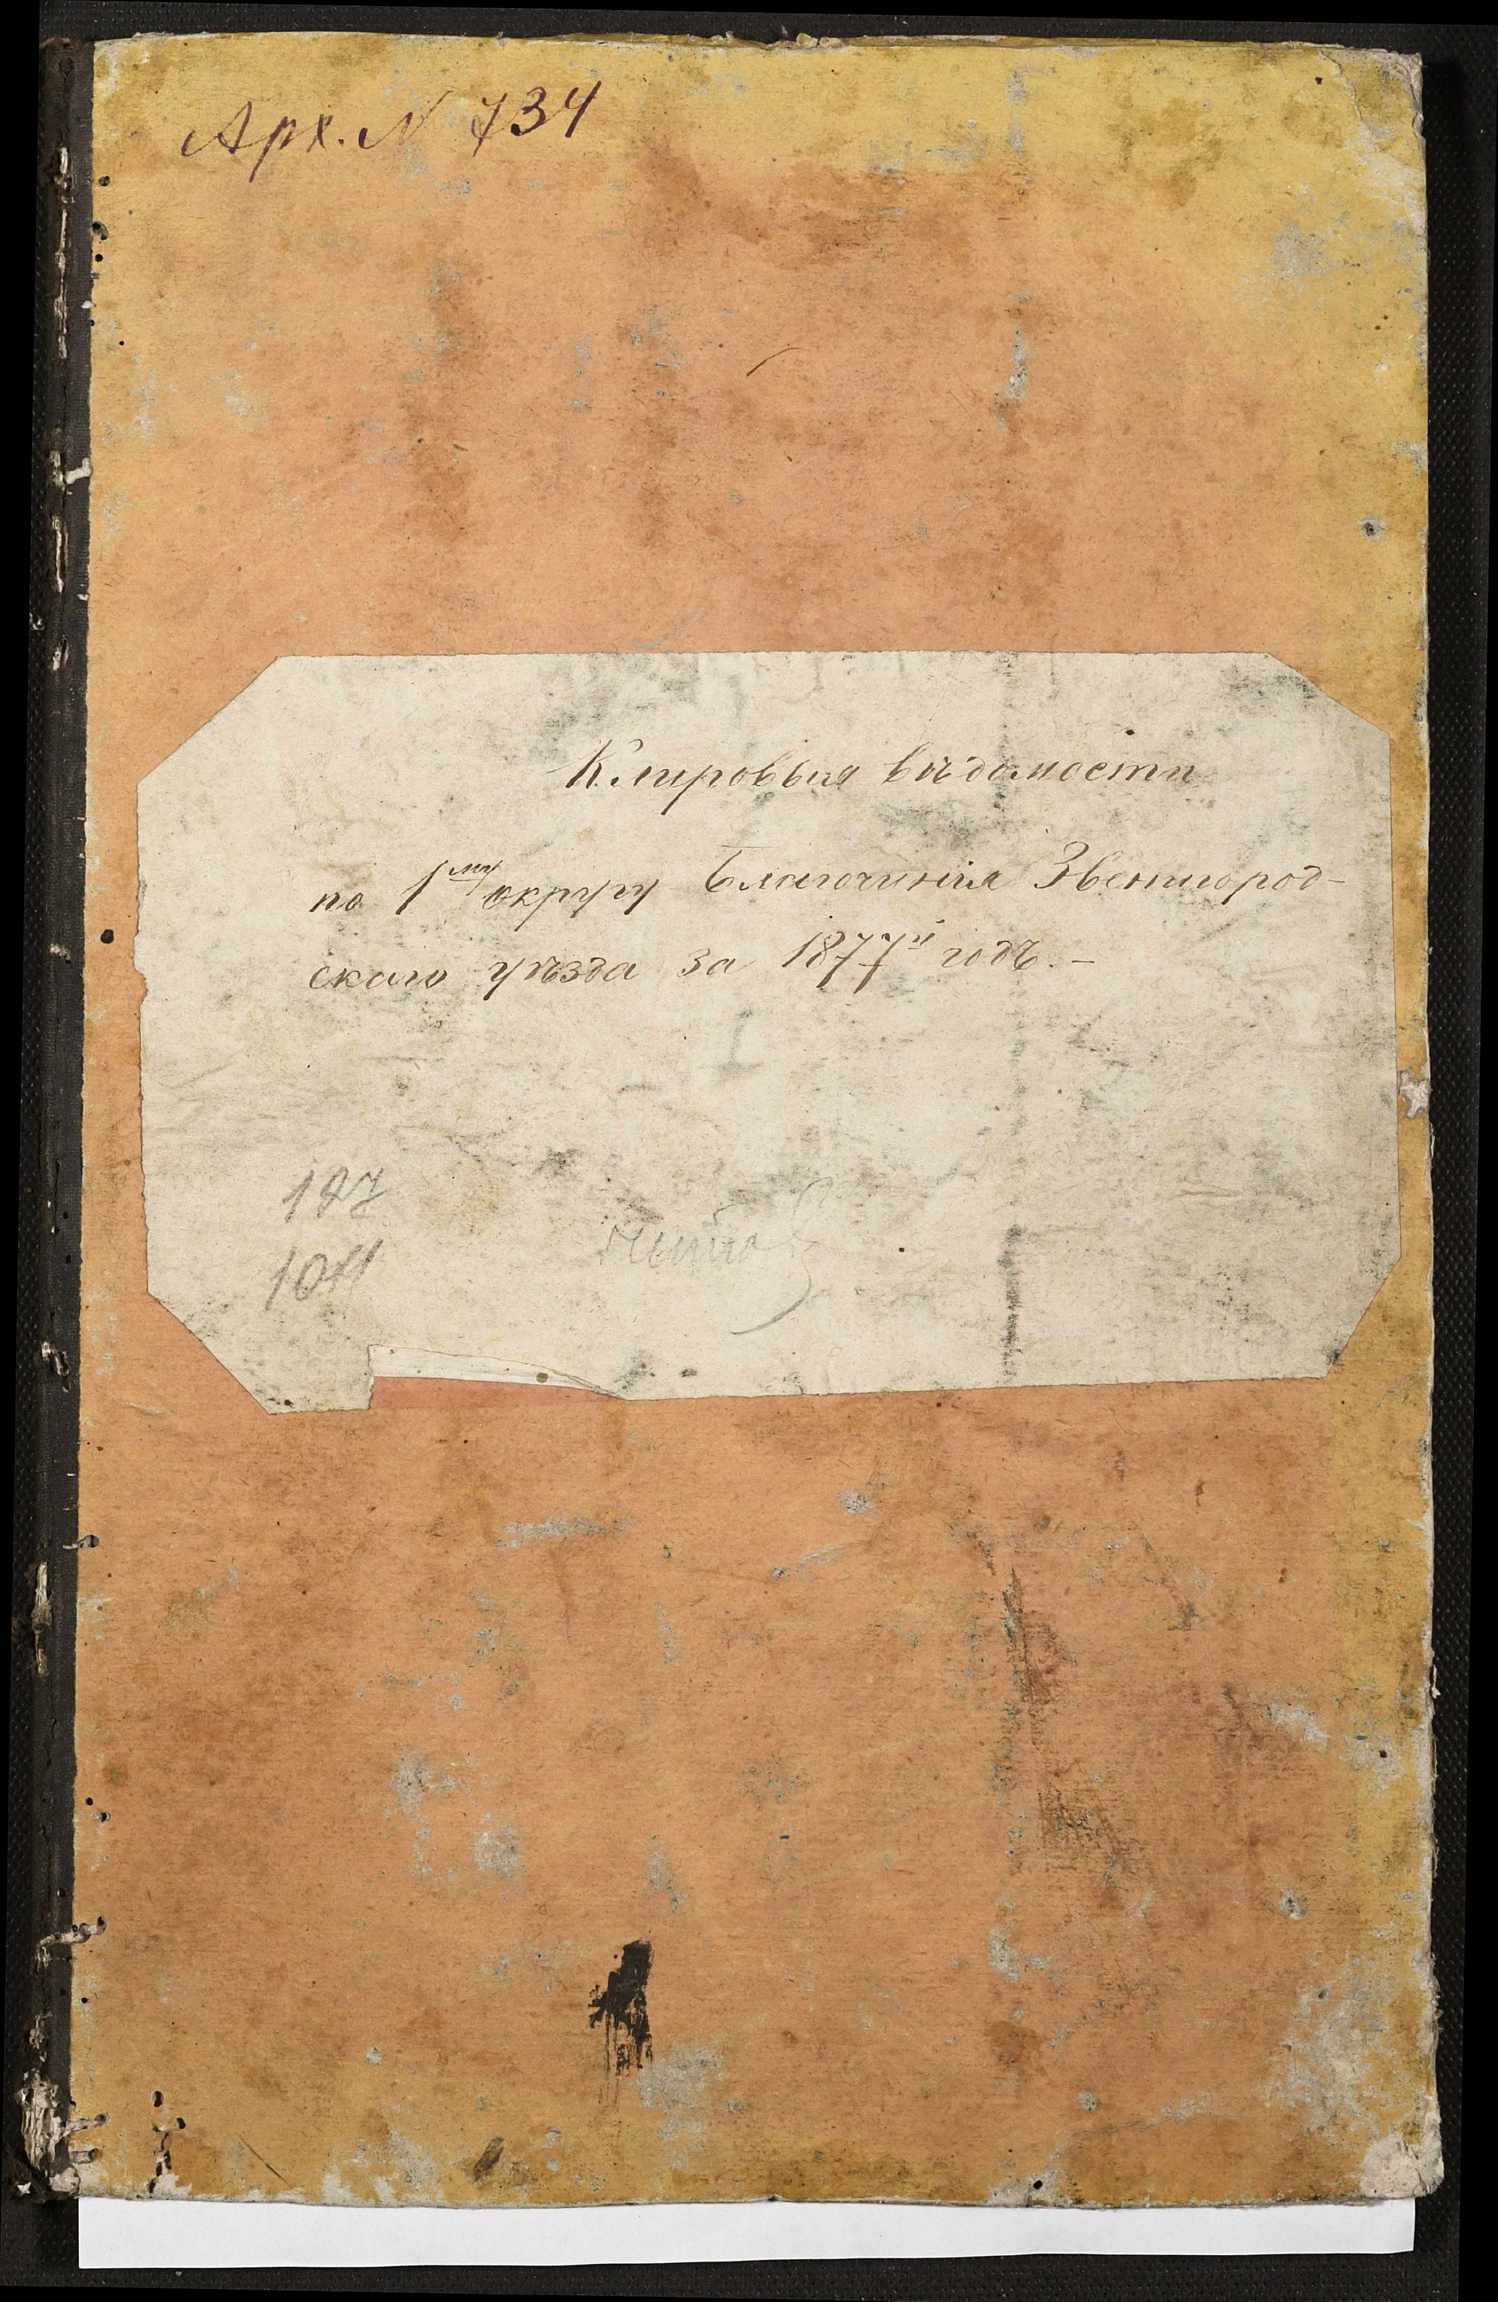 Арх. N 734
Клировыя вѣдомости
по 1му округу Благочинія Звенигород-
скаго уѣзда за 1877й годъ. -
187